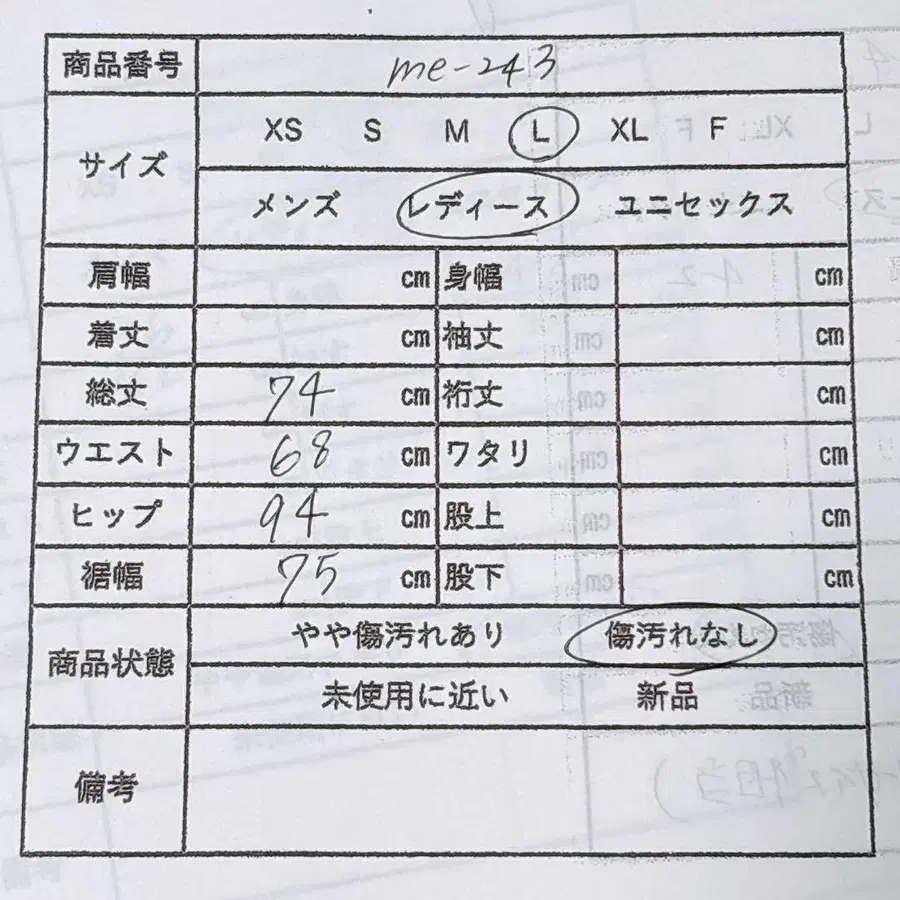 商品番号 me-243
サイズ XS S M L XL F
メンズ レディース ユニセックス
肩幅 cm 身幅 cm
着丈 cm 袖丈 cm
総丈 74 cm 裄丈 cm
ウエスト 68 cm ワタリ cm
ヒップ 94 cm 股上 cm
裾幅 75 cm 股下 cm
商品状態 やや傷汚れあり 傷汚れなし
未使用に近い 新品
備考